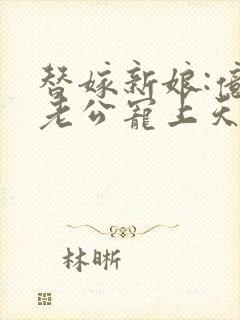 替嫁新娘:億
老公寵上天
林晰